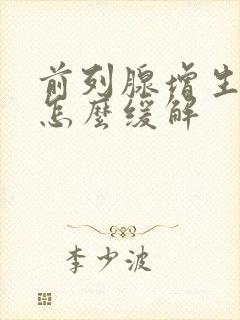 前列腺增生
怎麼缓解
李少波